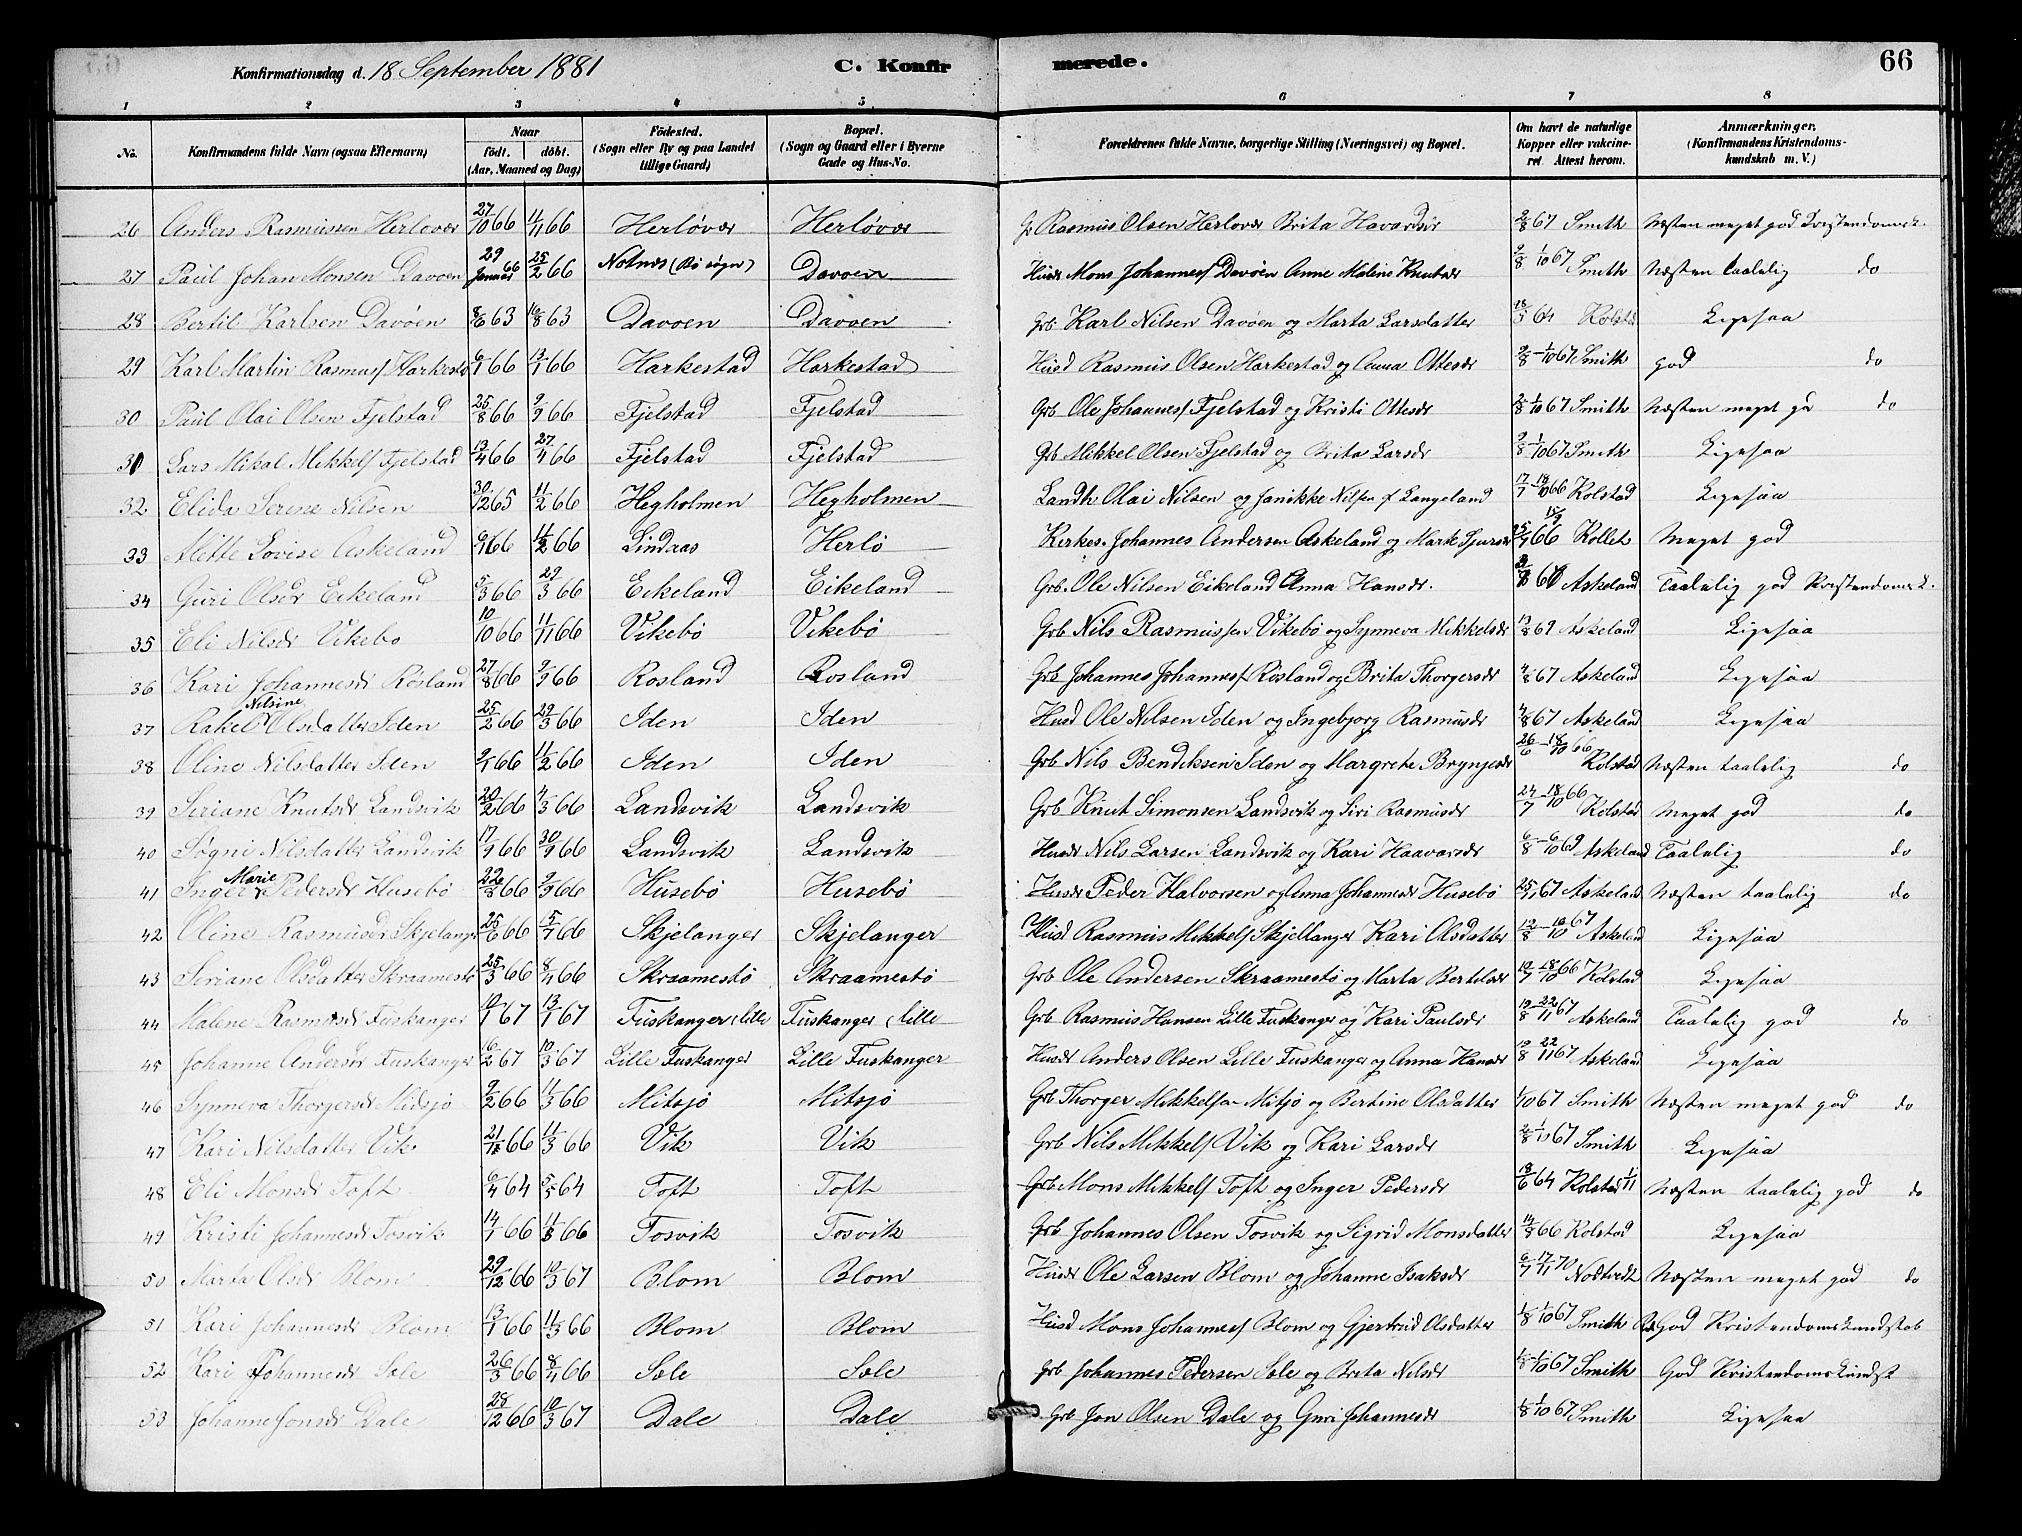 Konfirmationsdag d. 18 September 1881 C. Konfirmerede. 66
1 2 3 4 5 6 7 8
No. Konfirmandens fulde Navn (ogsaa Efternavn) Naar født. døbt. (Aar, Maaned og Dag) Fødested. (Sogn eller By og paa Landet tillige Gaard) Bopæl. (Sogn og Gaard eller i Byerne Gade og Hus-No. Forældrenes fulde Navne, borgerlige Stilling (Næringsvei) og Bopæl. Om havt de naturlige Kopper eller vakcineret. Attest herom. Anmærkninger. (Konfirmandens Kristendomskundskab m. V.)
26 Anders Rasmussen Herlovær 27/10 66 11/11 66 Herløvær Herløvær Rasmus Olsen Herlovær Brita Havardsdr Smith Næsten meget god Kristendomsk.
27 Paul Johan Monsen Davøen 29 Januar 66 25/2 66 Notnæs (Bø sogn) Davøen Husd Mons Johannes/ Davøen Anne Malene Knutsdr 2/8 1/10 67 Smith Næsten taalelig do
28 Bertil Karlsen Davøen 8/6 63 16/8 63 Davøen Davøen Grb. Karl Nilsen Davøen og Marta Larsdatter 64 Kolstad Ligesaa
29 Karl Martin Rasmus/ Harkestad 6/1 66 13/1 66 Harkestad Harkestad Husd Rasmus Olsen Harkestad og Anna Ottesdr 2/8 1/10 67 Smith god do
30 Paul Olai Olsen Fjelstad 25/8 66 9/9 66 Fjelstad Fjelstad Grb. Ole Johannes/ Fjelstad og Kristi Ottesdr 2/8 1/10 67 Smith Næsten meget go do
31 Lars Mikal Mikkels/ Fjelstad 13/4 66 27/4 66 Fjelstad Fjelstad Grb Mikkel Olsen Fjelstad og Brita Larsdr 2/8 1/10 67 Smith Ligesaa
32 Elida Serine Nilsen 30/12 65 11/2 66 Hegholmen Hegholmen Landh Olai Nilsen og Janikke Nilsen f Langeland 66 Kolstad Ligesaa
33 Mette Lovise Askeland 9/1 66 11/2 66 Lindaas Herlø Kirkes. Johannes Andersen Askeland og Marte Sjursdr 66 Kollet Meget god
34 Guri Olsdr Eikeland 5/3 66 29/3 66 Eikeland Eikeland Grb. Ole Nilsen Eikeland Anna Hansdr. Askeland Taalelig god Kristendomsk.
35 Eli Nilsdr Vikebø 10/10 66 11/11 66 Vikebø Vikebø Grb Nils Rasmussen Vikebø og Synneva Mikkelsdr 13/8 69 Askeland Ligesaa
36 Kari Johannesdr Rosland 27/8 66 9/9 66 Rosland Rosland Grb Johannes Johannes/ Rosland og Brita Thorgersdr 4/8 67 Askeland Ligesaa
37 Rakel Nilsine Olsdatter Iden 25/2 66 29/3 66 Iden Iden Husd Ole Nilsen Iden og Ingebjorg Rasmusdr 4/8 67 Askeland Ligesaa
38 Oline Nilsdatter Iden 9/1 66 11/2 66 Iden Iden Grb Nils Bendiksen Iden og Margrete Brynjesdr 26/6 18/10 66 Kolstad Næsten taalelig do
39 Seriane Knutsdr Landsvik 20/2 66 4/3 66 Landsvik Landsvik Grb Knut Simonsen Landsvik og Siri Rasmusdr 24/7 18/10 66 Kolstad Meget god do
40 Søgni Nilsdatter Landsvik 17/9 66 30/9 66 Landsvik Landsvik Husdr Nils Larsen Landsvik og Kari Haavarsdr 6/8 6/10 69 Askeland Taalelig do
41 Inger Marie Pedersdr Husebø 22/8 66 9/9 66 Husebø Husebø Husdr Peder Halvorsen og Anna Johannesdr Husebø 67 Askeland Næsten taalelig do
42 Oline Rasmusdr Skjelanger 25/6 66 15/7 66 Skjelanger Skjelanger Husd Rasmus Mikkels/ Skjellanger Kari Olsdatter 67 Askeland Ligesaa
43 Seriane Olsdatter Skraamestø 25/3 66 8/4 66 Skraamestø Skraamestø Grb Ole Andersen Skraamestø og Marta Bertelsdr 18/10 66 Kolstad Ligesaa
44 Malene Rasmusdr Fuskanger 10/1 67 13/1 67 Fuskanger, lille Fuskanger, lille Grb Rasmus Hansen Lille Fuskanger og Kari Paulsdr 22/11 67 Askeland Taalelig god do
45 Johanne Andersdr Fuskanger 16/2 67 10/3 67 Lille Fuskanger Lille Fuskanger Husdr Anders Olsen Lille Fuskanger og Anna Hansdr 22/11 67 Askeland Ligesaa
46 Synneva Thorgersdr Midsjø 9/2 66 11/3 66 Mitsjø Mitsjø Grb Thorger Mikkelsen Mitjø og Bertine Olsdatter 1/10 67 Smith Næsten meget god do
47 Kari Nilsdatter Vik 66 11/3 66 Vik Vik Grb Nils Mikkels/ Vik og Kari Larsdr 2/8 1/10 67 Smith Ligesaa
48 Eli Monsdr Toft 6/4 64 5/5 64 Toft Toft Grb Mons Mikkels/ Toft og Inger Pedersdr 18/6 64 Kolstad 1/11 Næsten taalelig god do
49 Kristi Johannesdr Tosvik 14/7 66 66 Tosvik Tosvik Grb Johannes Olsen Tosvik og Sigrid Monsdatter 14/8 66 Kolstad Ligesaa
50 Marta Olsdr Blom 29/12 66 10/3 67 Blom Blom Husdr Ole Larsen Blom og Johanne Isaksdr 6/7 17/11 70 Nodtvedt Næsten meget god do
51 Kari Johannesdr Blom 13/1 66 11/3 66 Blom Blom Husd Mons Johannes/ Blom og Gjertrud Olsdatter 1/8 1/10 67 Smith God Kristendomskundskab
52 Kari Johannesdr Sæle 26/3 66 8/4 66 Sæle Sæle Grb Johannes Pedersen Sæle og Brita Nilsdr 1/8 1/10 67 Smith God Kristendomskundsk
53 Johanne Jonsdr Dale 28/12 66 10/3 67 Dale Dale Grb Jon Olsen Dale og Guri Johannesdr 1/8 1/10 67 Smith Ligesaa